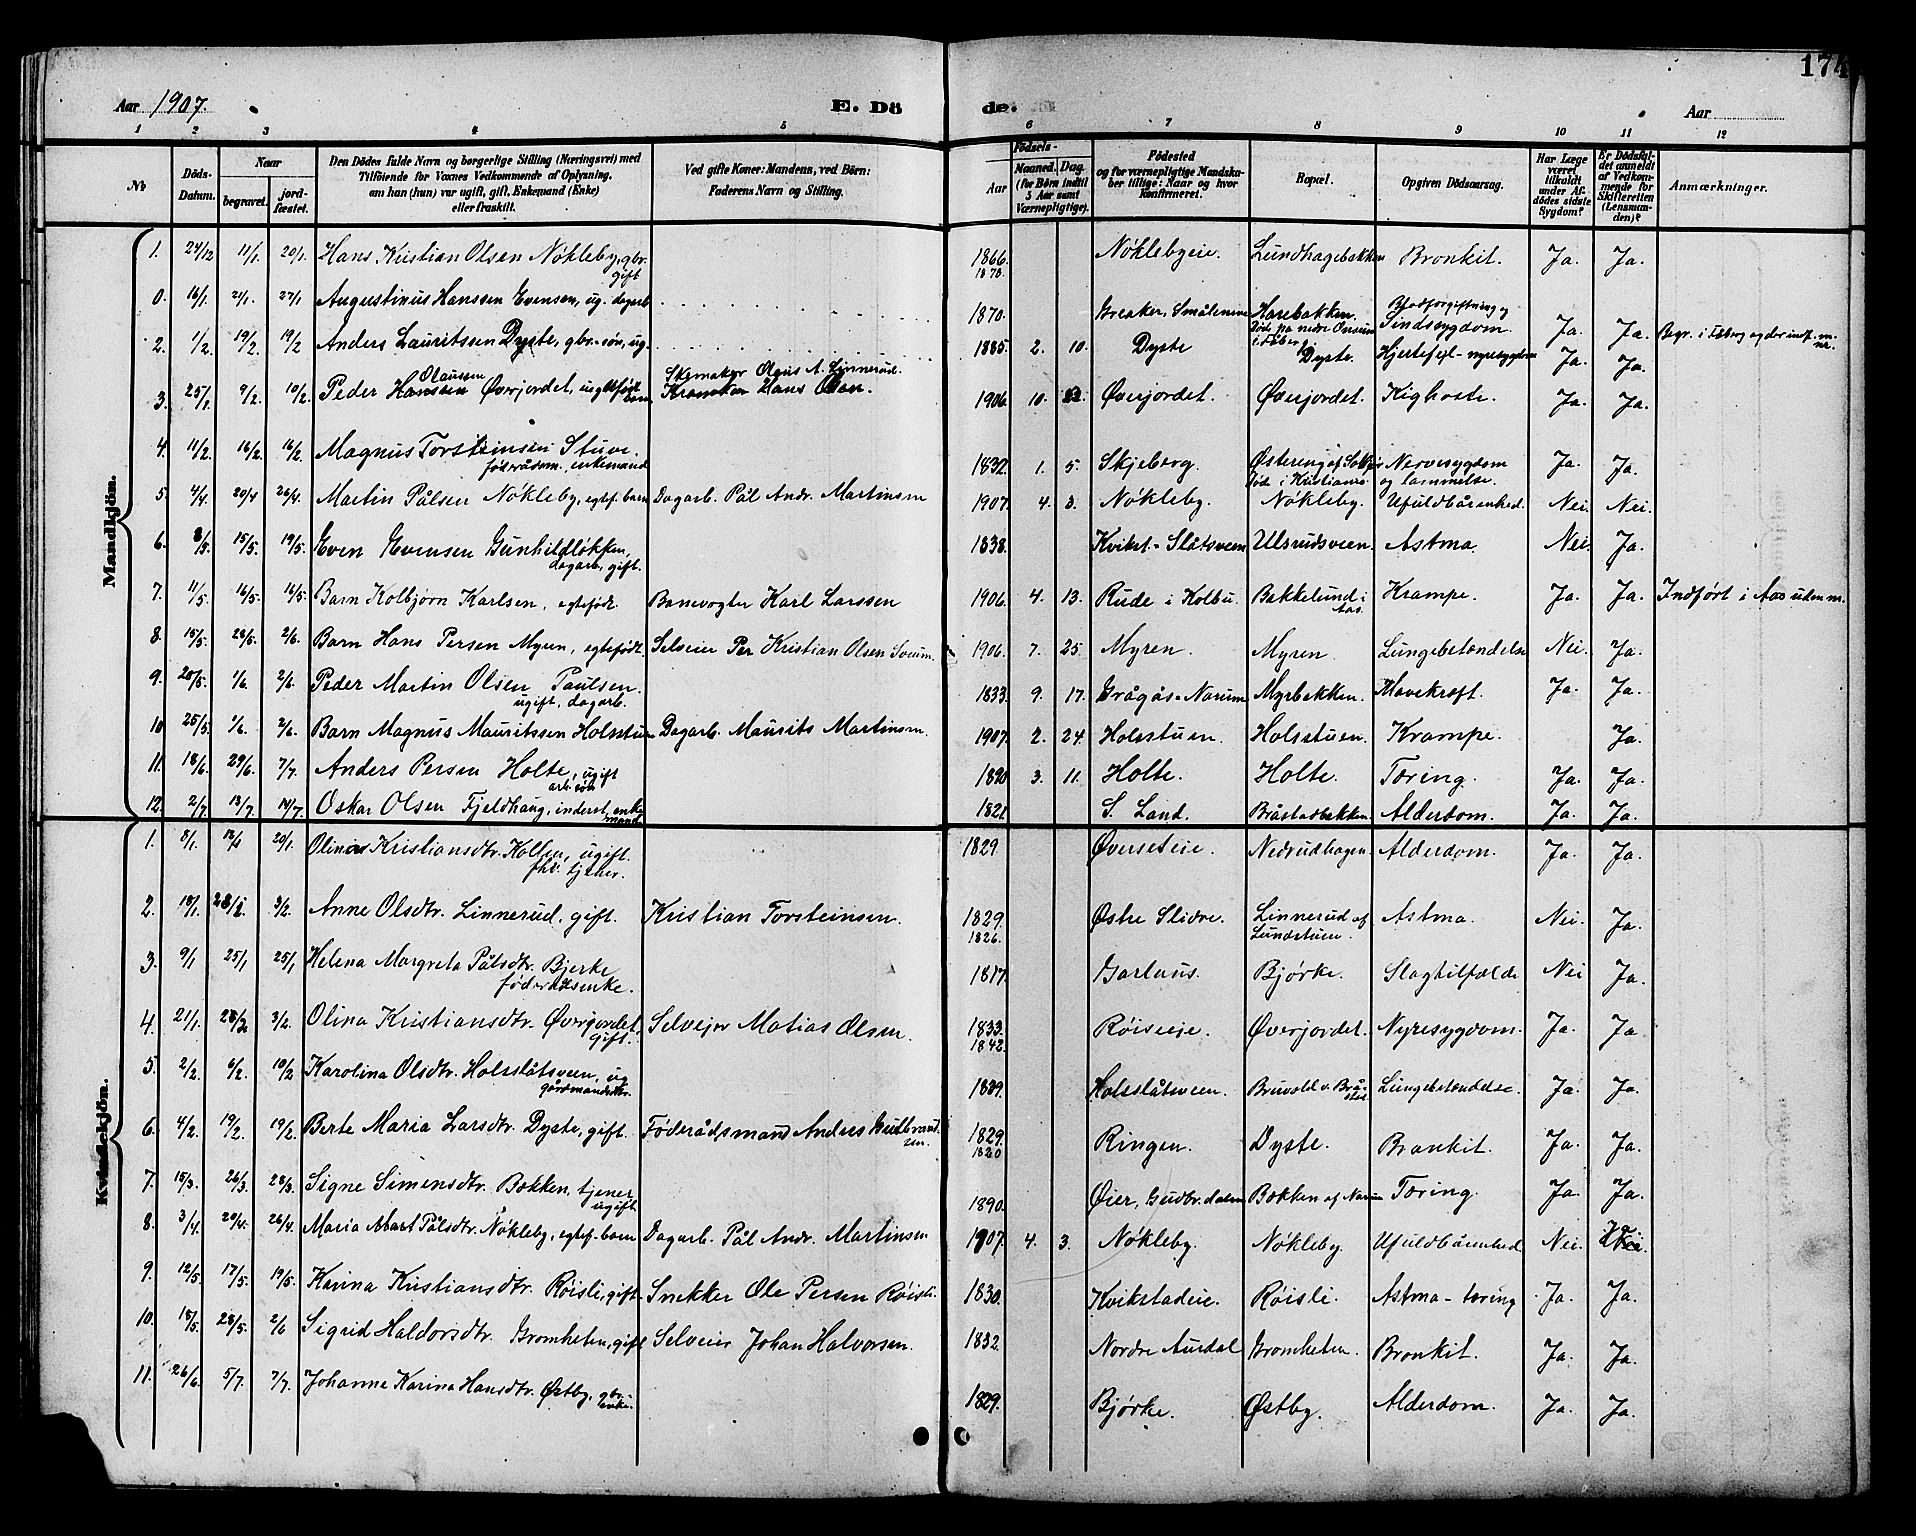 174
Aar 1907. E. Döde. Aar
1 2 3 4 5 6 7 8 9 10 11 12
No
Döds-Datum.
Naar begravet. jordfæstet.
Den Dödes fulde Navn og borgerlige Stilling (Næringsvei) med Tilföiende for Voxnes Vedkommende af Oplysning, om han (hun) var ugift, gift, Enkemand (Enke) eller fraskilt.
Ved gifte Koner: Mandens, ved Börn: Faderens Navn og Stilling.
Födsels-
Aar Maaned. Dag. (for Börn indtil 5 Aar samt Værnepligtige).
Födested og for værnepligtige Mandskaber tillige: Naar og hvor konfirmeret.
Bopæl.
Opgiven Dödsaarsag.
Har Læge været tilkaldt under Afdödes sidste Sygdom?
Er Dödsfaldet anmeldt af Vedkommende for Skifteretten (Lensmanden)?
Anmærkninger.
Mandkjön.
1. 24/12 11/1. 20/1. Hans Kristian Olsen Nøkleby, gbr. gift 1866. 1870. Nøklebyeie. Lundhagebakken Bronkit. Ja. Ja.
0. 16/1. 21/1. 27/1 Augustinus Hanssen Evensen, ug. dagarb. 1870. Greaker, Smålenene Harebakken. Død på nedre Onsum i Fåberg. Blodforgiftning og Sindssygdom. Ja. Ja. Begr. i Fåberg og der indf. m. nr.
2. 1/2. 19/2. 19/2 Anders Lauritssen Dyste, gbr.-søn, ug. 1885. 2. 10. Dyste Dyste. Hjertefejl-nyresygdom Ja. Ja.
3. 25/1. 9/2. 10/2. Peder Hanssen Olaussen Øverjordet, uegtefødt barn, Skomaker Olaus A. Linnerud. Hans Olsen. 1906. 10. Øverjordet. Øverjordet. Kighoste. Ja. Ja.
4. 11/2. 16/2. 16/2. Magnus Torsteinsen Stuve. føderådsm. enkemand 1832. 1. 5. Skjeberg. Østereng Død i Kristiania Nervesygdom og lammelse. Ja. Ja.
5. 4/4. 20/4 26/4. Martin Pålsen Nøkleby, egtef. barn Dagarb. Pål Andr. Martinsen 1907. 4. 3. Nøkleby. Nøkleby. Ufuldbårenhed. Nei. Nei.
6. 8/5. 15/5. 19/5. Even Evensen Gunhildløkken, dagarb, gift. 1838. Kvikst-Slåtsveen Ulsrudsveen. Astma. Nei. Ja.
7. 11/5. 16/5. 16/5. Barn Kolbjørn Karlsen, egtefødt. Banevogter Karl Larssen 1906. 4. 13. Rude i Kolbu. Bakkelund i Aas. Krampe. Ja. Ja. Indført i Aas uden nr.
8. 15/5. 28/5. 2/6. Barn Hans Persen Myren, egtefødt. Selveier Per Kristian Olsen Sveum. 1906. 7. 25. Myren. Myren. Lungebetændelse Nei. Ja.
9. 20/5. 1/6. 2/6. Peder Martin Olsen Paulsen. ugift, dagarb. 1833. 9. 17. Grågås-Narum Myrbakken. Mavekræft. Ja. Ja.
10 25/5. 1/6. 2/6. Barn Magnus Mauritssen Holsstuen Dagarb. Maurits Martinsen. 1907. 2. 24. Holsstuen. Holsstuen. Krampe. Ja.
11. 18/6. 29/6. 7/7. Anders Persen Holte, ugift arb. søn 1890 3. 11. Holte. Holte. Tæring. Ja. Ja.
12. 2/7. 13/7. 14/7. Oskar Olsen Fjeldhaug, inderst, enkemand 1821. S. Land. Bråstadbakken. Alderdom. Ja. Ja.
Kvindekjön.
1. 8/1. 20/1. Olina Kristiansdtr. Kolsen, ugift. fhv. tjener. 1829 Øverseteie. Nedrudhagen. Alderdom. Ja. Ja.
2. 18/1. 3/2. Anne Olsdtr. Linnerud, gift. Kristian Torsteinsen. 1829. 1826. Østre Slidre. Linnerud af Lundstuen. Astma. Nei. Ja.
3. 9/1 25/1 25/1 Helena Margreta Pålsdtr. Bjerke føderådsenke. 1817. Garlaus. Bjørke. Slagtilfælde Nei Ja.
4. 21/1. 3/2. Olina Kristiansdtr. Øverjordet gift. Selvejer Matias Olsen 1833. 1842. Røiseie. Øverjordet. Nyresygdom. Ja. Ja.
5. 2/2. 6/2. 10/2 Karolina Olsdtr. Holsslåtsveen, ug gårdmandsdtr. 1839. Holsslåtsveen. Bruvold v. Bråstad. Lungebetændelse. Ja. Ja.
6. 4/2. 19/2. 19/2. Berte Maria Larsdtr. Dyste, gift. Føderådsmand Andres Gulbrandsen. 1829. 1820 Ringen. Dyste. Bronkit. Ja. Ja.
7. 15/3. 26/3. 28/3. Signe Simensdtr. Bakken, tjener ugift 1890. Øier, Gudbr. dalen Bakken af Narum Tæring. Ja. Ja.
8. 3/4. 20/4. 26/4. Maria Pålsdtr. Nøkleby, egtef. barn Dagarb. Pål Andr. Martinsen 1907. 4. 3. Nøkleby. Nøkleby. Ufuldbårenhed. Nei. Nei.
9. 12/5. 17/5. 19/5. Karina Kristiansdtr. Røisli, gift Snekker Ole Persen Røisli. 1830. Kvikstadeie. Røisli. Astma-tæring Ja. Ja.
10. 18/5. 28/5. 2/6 Sigrid Haldorsdtr. Gromheten, gift Selveier Johan Halvorsen. 1832. Nordre Aurdal Gromheten. Bronkit. Ja. Ja.
11. 26/6. 5/7. 7/7. Johanne Karina Hansdtr. Østby, gbr. enke. 1829. Bjørke. Østby. Alderdom. Ja. Ja.